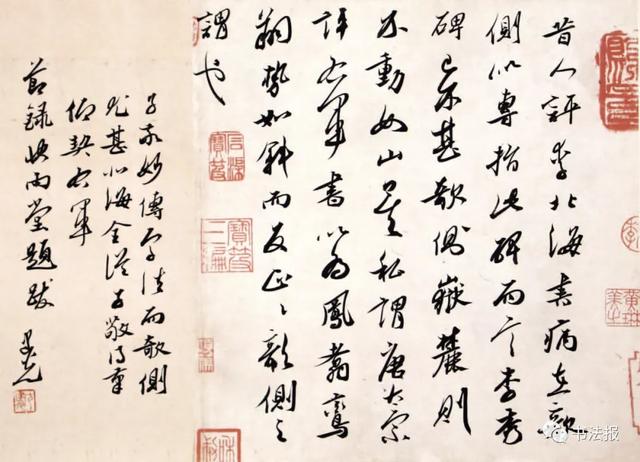 昔人評李北海書病在欹
側以專指此碑而言李秀
碑已不甚欹側嶽麓則
不動如山矣私謂唐太宗
評右軍書以為鳳翥鸞
翔勢如斜而反正欹側之
謂也
子敬妙傳家法而欹側
尤甚北海全從子敬得筆
仰契右軍
節錄 題跋
书法报